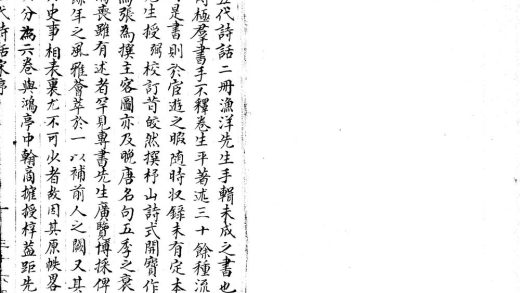 五代詩話二冊漁洋先生手輯未成之書也
極羣書手不釋卷生平著述三十餘種流
是書則於宦遊之暇隨時収録未有定本
生授弼校訂昔皎然撰杼山詩式開齊作
為張為撰主客圖亦及晚唐名句五季之衰
喪雖有述者罕見專書先生廣覽博採俾
年之風雅薈萃於一以補前人之闕又其
史事相表裏尤不可少者故因其原帙畧
分為六卷與鴻亭中翰商搉授梓葢距先
代詩話宋序